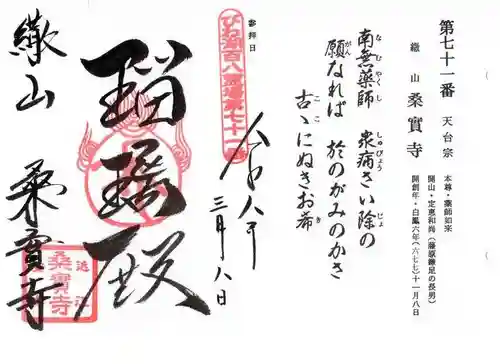 第七十一番 天台宗
繖山 桑實寺
本尊・薬師如来
開山・定恵和尚(藤原鎌足の長男)
開創年・白鳳六年(六七七)十一月八日
南無薬師 衆病さい除の
なむやくし しゅびょう じょ
願なれば 於のがみのかさ
がん
古ゝにぬきお希
ここ き
参拝日
八年
三月八日
びわ湖百八霊場第七十一番
瑠璃殿
繖山 桑實寺
桑實寺